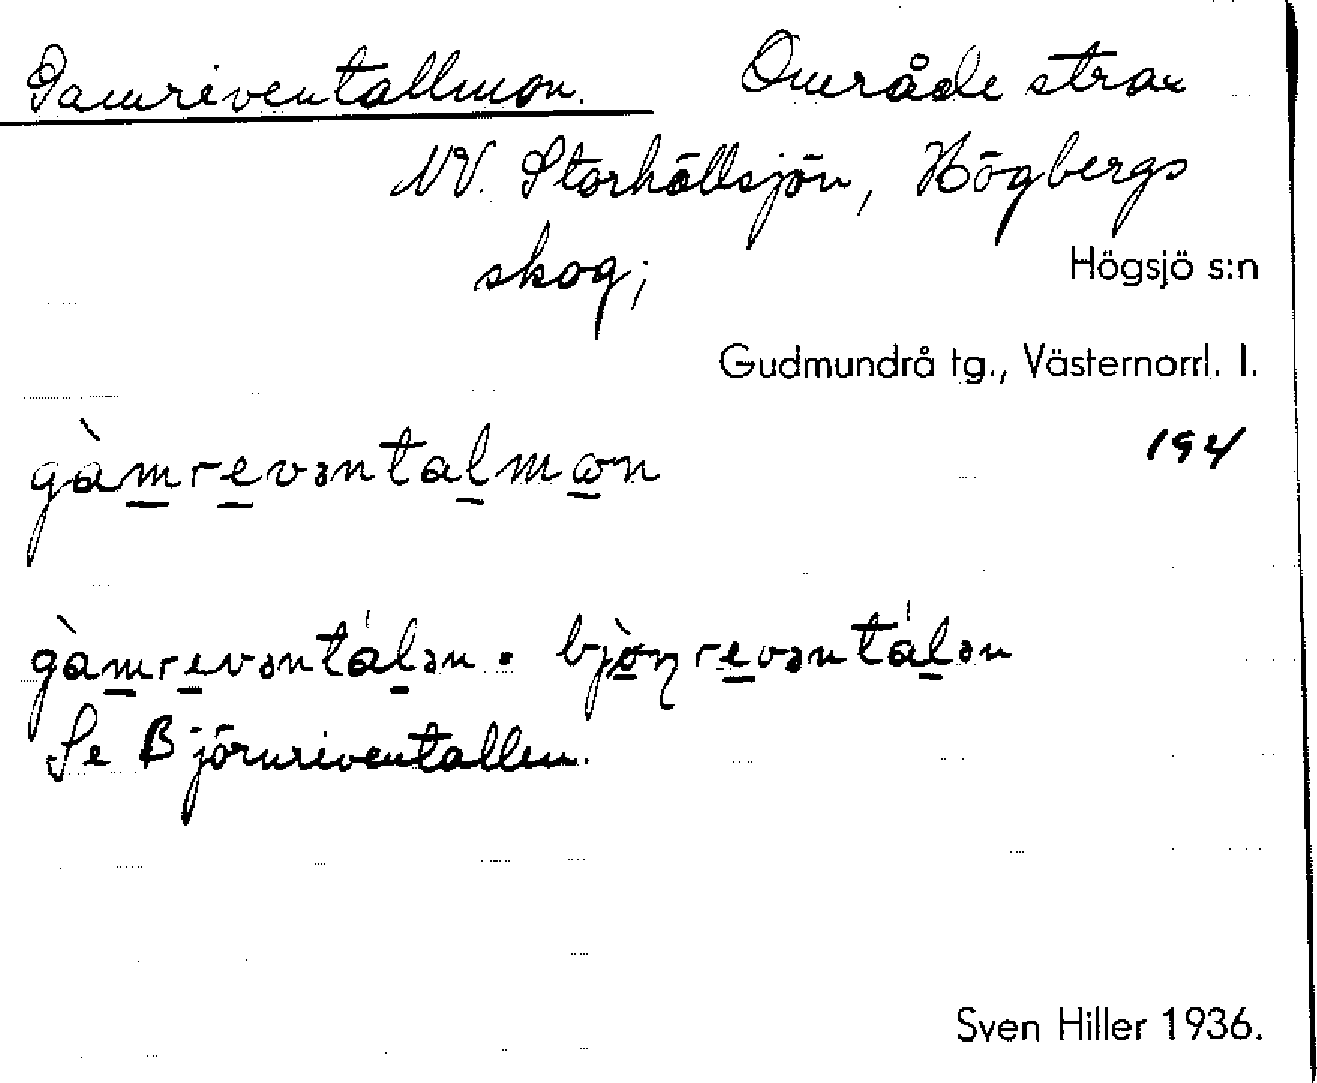 Gamriventallmon. Område strax
NV. Storhällsjön, Högbergs
skog;
Högsjö s:n
Gudmundrå tg., Västernorrl. l.
gàmrevəntalmɷn
194
gàmrevəntálən. bjòɳrevəntálən
Se Björnriventallen.
Sven Hiller 1936.